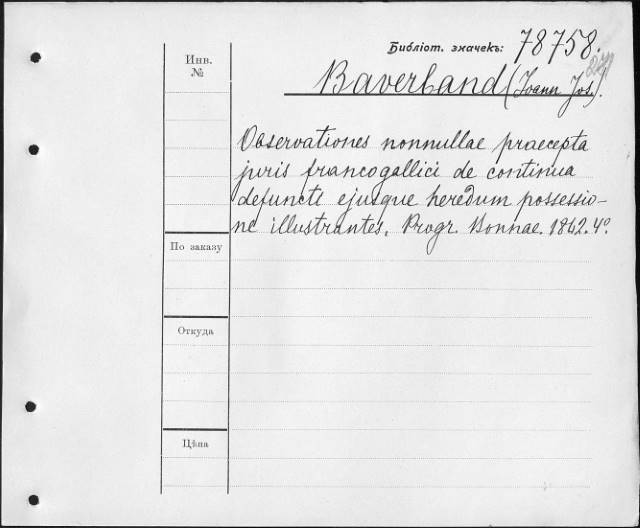 Библіот. значекъ: 78758.
Инв.
№
Baverband (Joann Jos.).
Observationes nonnullae praecepta
juris francogallici de continua
defuncti ejusque heredum possessio-
ne illustrantes, Progr. Bonnae. 1862. 4º.
По заказу
Откуда
Цѣна